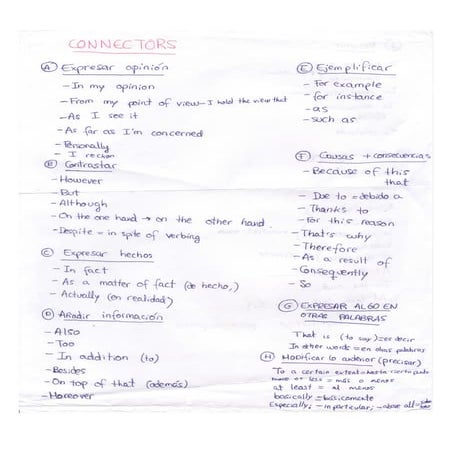 CONNECTORS
A Expresar opinión
- In my opinion
- From my point of view - I hold the view that
- As I see it
- As far as I'm concerned
- Personally
- I reckon
B Contrastar
- However
- But
- Although
- On the one hand → on the other hand
- Despite = in spite of verbing
C Expresar hechos
- In fact
- As a matter of fact (de hecho,)
- Actually (en realidad)
D Añadir información
- Also
- Too
- In addition (to)
- Besides
- On top of that (además)
- Moreover
E Ejemplificar
- For example
- for instance
- as
- such as
F Causas + consecuencias
- Because of this
that
- Due to = debido a
- Thanks to
- For this reason
- That's why
- Therefore
- As a result of
- Consequently
- So
G EXPRESAR ALGO EN
OTRAS PALABRAS
That is (to say) = es decir
In other words = en otras palabras
H Modificar lo anterior (precisar)
To a certain extent = hasta cierto punto
more or less = más o menos
at least = al menos
basically = basicamente
Especially; - in particular; - above all =